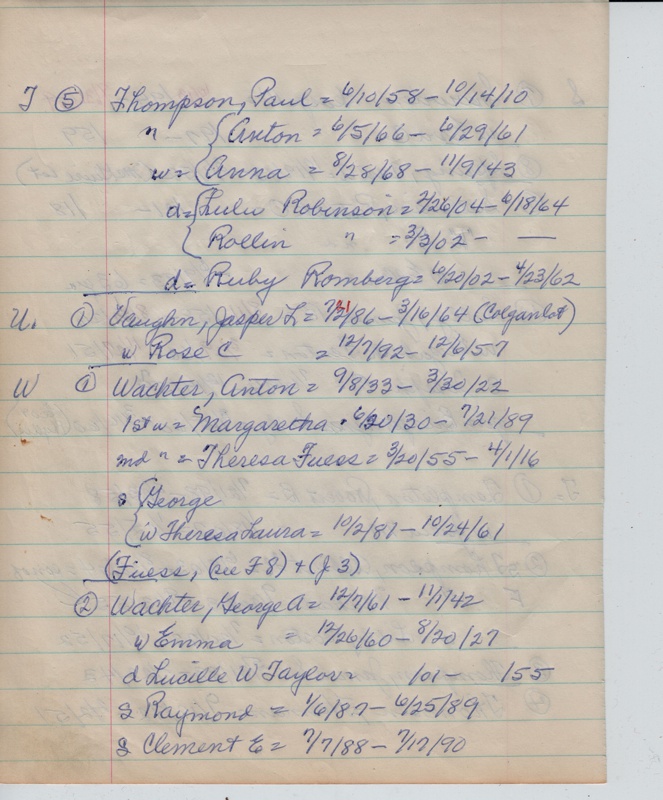 T ⑤ Thompson, Paul = 6/10/58 - 10/14/10
" { Anton = 6/5/66 - 6/29/61
w = { Anna = 8/28/68 - 11/9/43
d = { Lulu Robinson = 7/26/04 - 6/18/64
{ Rollin " = 3/3/02 - —
d = Ruby Romberg = 6/20/02 - 4/23/62
U. ① Vaughn, Jasper L = 7/31/86 - 3/16/64 (Colgan lot)
w Rose C = 12/7/92 - 12/6/57
W ① Wachter, Anton = 9/8/33 - 3/30/22
1st w = Margaretha 6/20/30 - 7/21/89
2nd " = Theresa Fuess = 3/20/55 - 4/1/16
s { George
{ w Theresa Laura = 10/2/87 - 10/24/61
(Fuess, (see F 8) + (J 3)
② Wachter, George A = 12/7/61 - 11/1/42
w Emma = 12/26/60 - 8/20/27
d Lucille W Taylor = /01 - /55
s Raymond = 1/6/87 - 6/25/89
s Clement E = 7/7/88 - 7/17/90